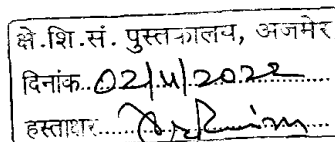 क्षे.शि.सं. पुस्तकालय, अजमेर
दिनांक..02/11/2022
हस्ताक्षर